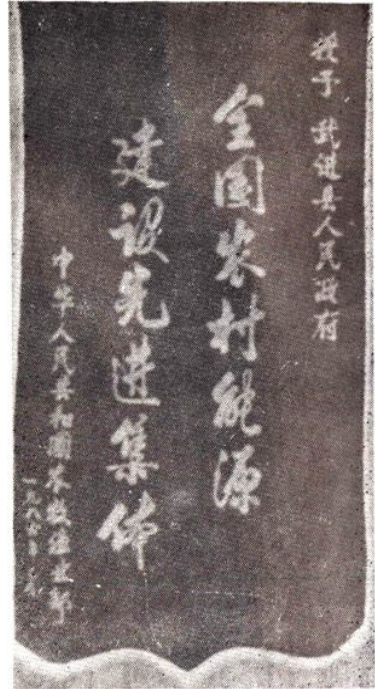 授予 武进县人民政府
全国农村能源
建设先进集体
中华人民共和国农牧渔业部
一九八